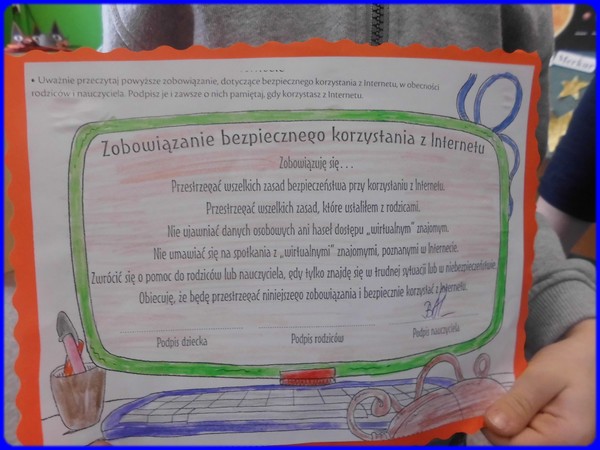 • Uważnie przeczytaj powyższe zobowiązanie, dotyczące bezpiecznego korzystania z Internetu, w obecności
rodziców i nauczyciela. Podpisz je i zawsze o nich pamiętaj, gdy korzystasz z Internetu.
Zobowiązanie bezpiecznego korzystania z Internetu
Zobowiązuję się...
Przestrzegać wszelkich zasad bezpieczeństwa przy korzystaniu z Internetu.
Przestrzegać wszelkich zasad, które ustaliłem z rodzicami.
Nie ujawniać danych osobowych ani haseł dostępu „wirtualnym” znajomym.
Nie umawiać się na spotkania z „wirtualnymi” znajomymi, poznanymi w Internecie.
Zwrócić się o pomoc do rodziców lub nauczyciela, gdy tylko znajdę się w trudnej sytuacji lub w niebezpieczeństwie.
Obiecuję, że będę przestrzegać niniejszego zobowiązania i bezpiecznie korzystać z Internetu.
Podpis dziecka
Podpis rodziców
Podpis nauczyciela